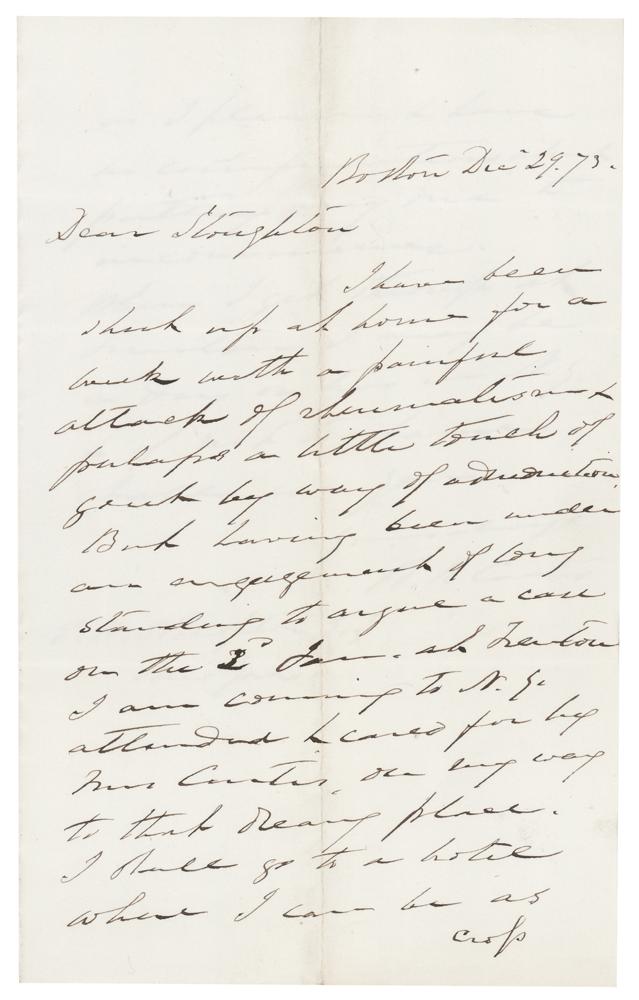 Boston Dec 29. 73.
Dear Stoughton
I have been
shut up at home for a
week with a painful
attack of rheumatism &
perhaps a little touch of
gout by way of admonition
But having been under
an engagement of long
standing to argue a case
on the 2d Jan. at Trenton
I am coming to N. Y.
attended & cared for by
Mrs Curtis, on my way
to that dreary place.
I shall go to a hotel
where I can be as
cross